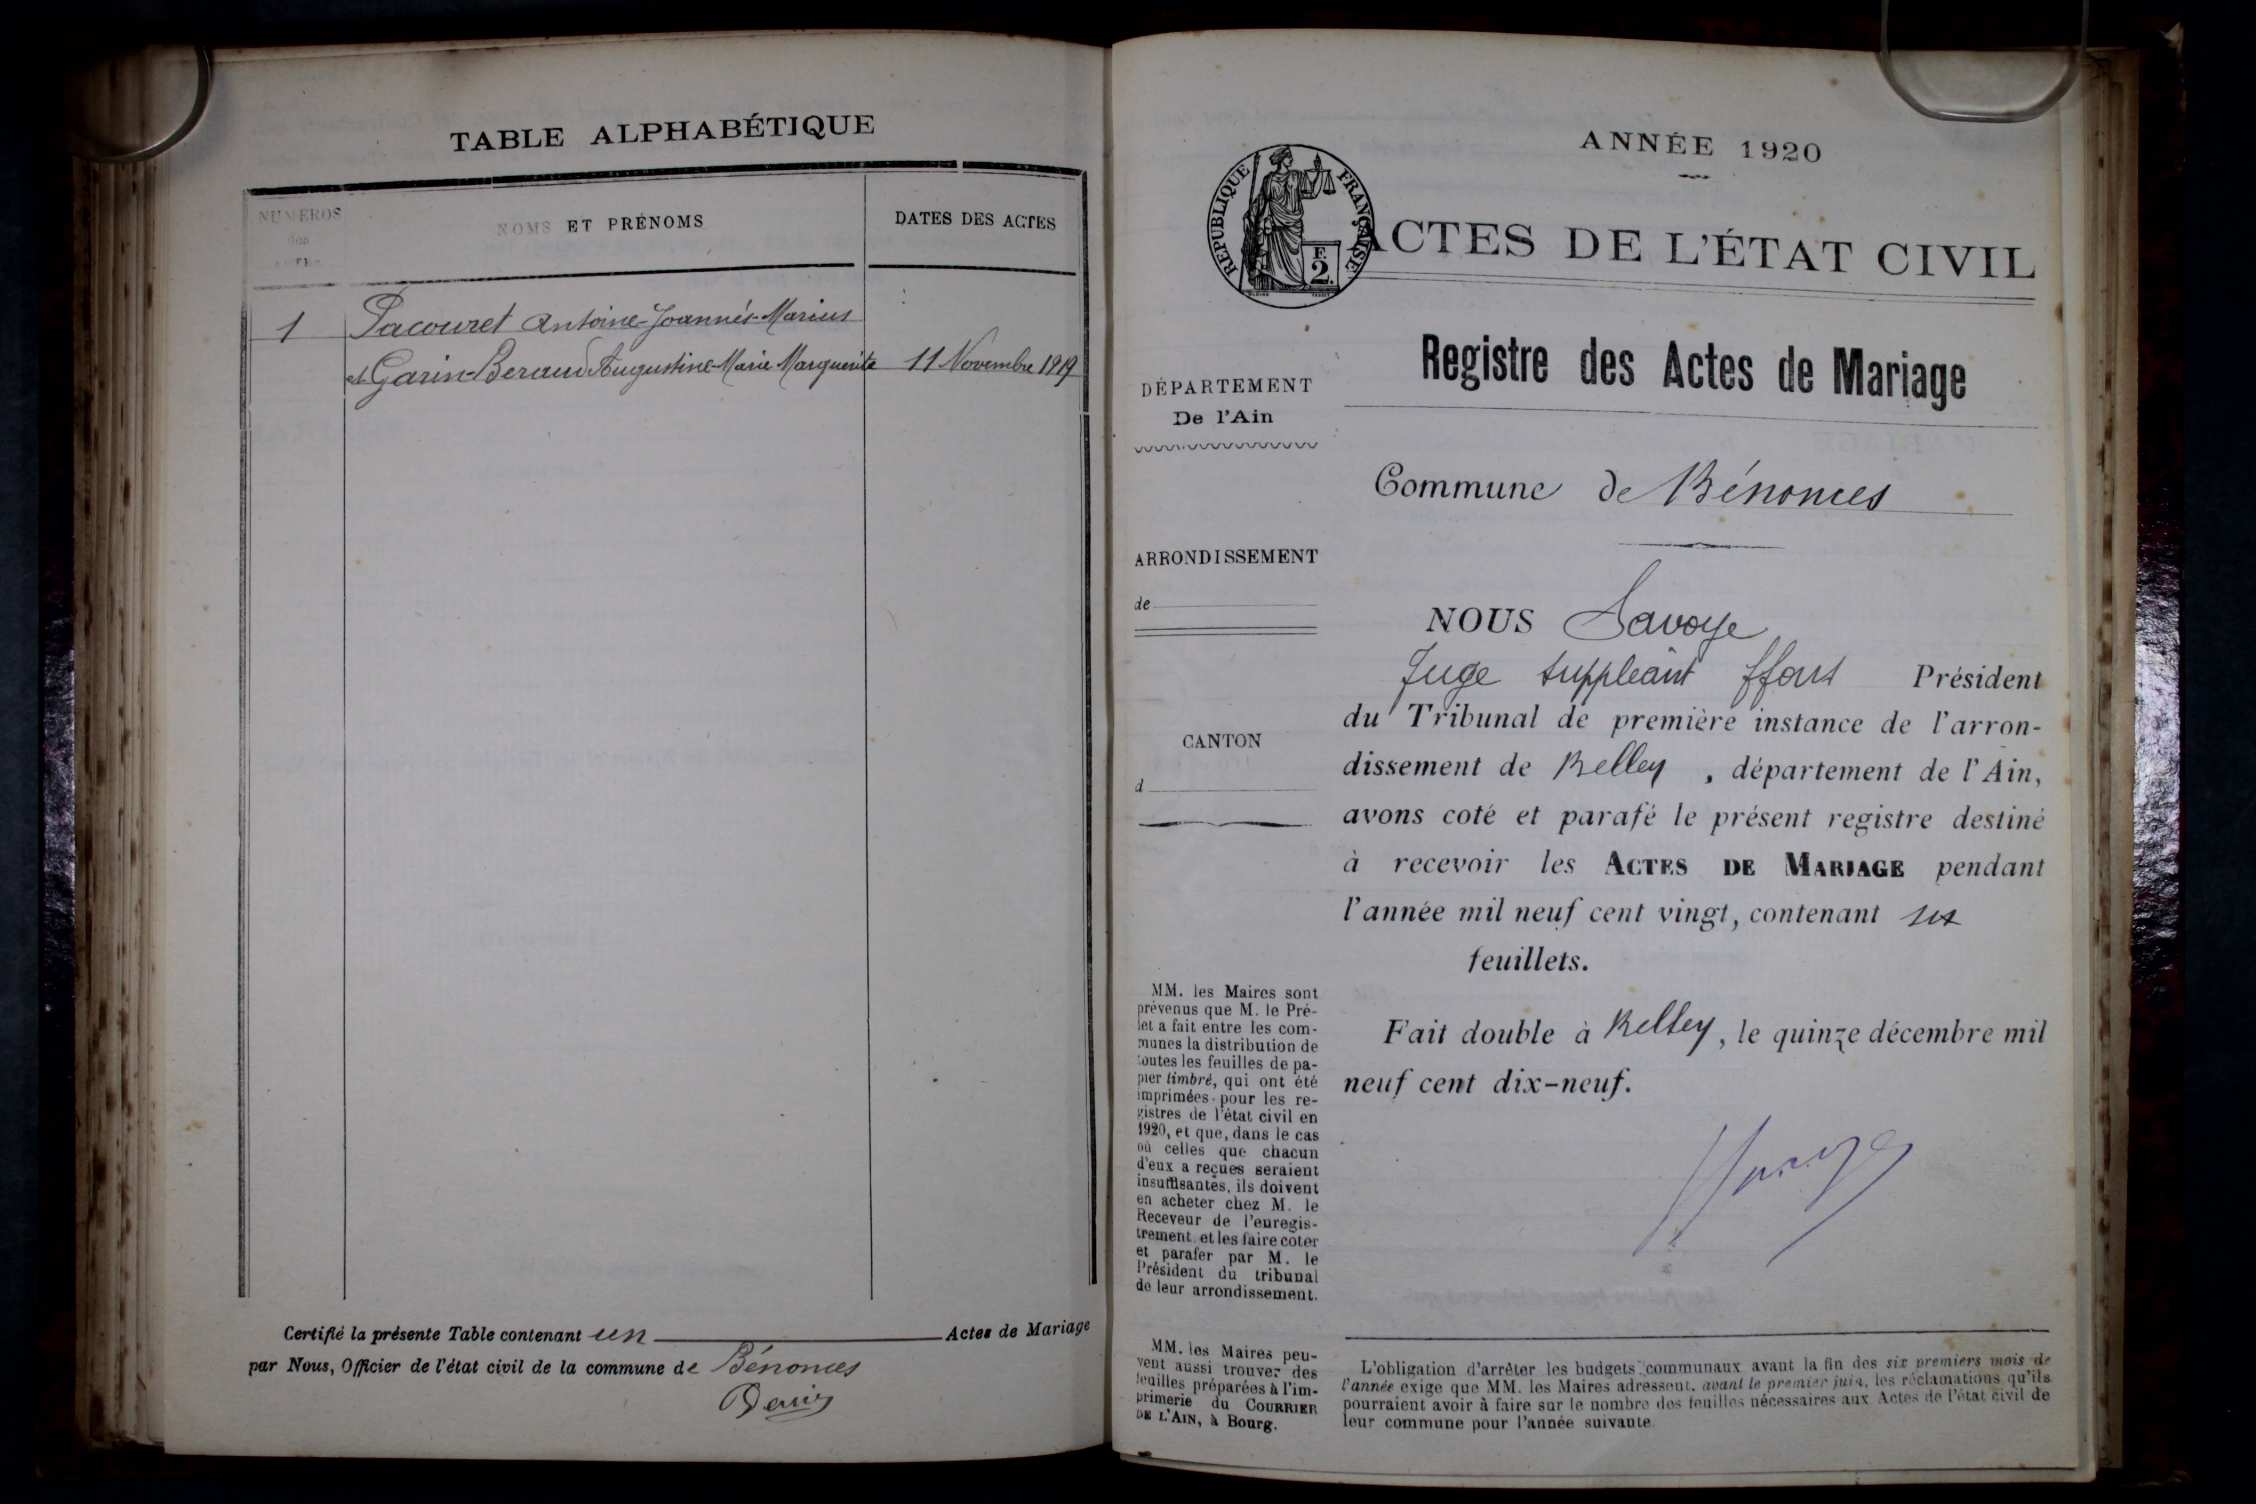 TABLE ALPHABÉTIQUE
NUMÉROS
des
ACTES
NOMS ET PRÉNOMS
DATES DES ACTES
1
Pacouret Antoine-Joannès-Marius
et Garin-Beraud Augustine-Marie Marguerite
11 Novembre 1919
Certifié la présente Table contenant un Actes de Mariage
par Nous, Officier de l'état civil de la commune de Bénonces
ANNÉE 1920
RÉPUBLIQUE FRANÇAISE
F.
2.
ACTES DE L'ÉTAT CIVIL
Registre des Actes de Mariage
DÉPARTEMENT
De l'Ain
Commune de Bénonces
ARRONDISSEMENT
de
CANTON
d
NOUS Savoye
Juge suppléant ffons Président
du Tribunal de première instance de l'arron-
dissement de Belley , département de l'Ain,
avons coté et parafé le présent registre destiné
à recevoir les ACTES DE MARIAGE pendant
l'année mil neuf cent vingt, contenant six
feuillets.
Fait double à Belley, le quinze décembre mil
neuf cent dix-neuf.
MM. les Maires sont
prévenus que M. le Pré-
fet a fait entre les com-
munes la distribution de
toutes les feuilles de pa-
pier timbré, qui ont été
imprimées pour les re-
gistres de l'état civil en
1920, et que, dans le cas
où celles que chacun
d'eux a reçues seraient
insuffisantes, ils doivent
en acheter chez M. le
Receveur de l'enregis-
trement et les faire coter
et parafer par M. le
Président du tribunal
de leur arrondissement.
MM. les Maires peu-
vent aussi trouver des
feuilles préparées à l'im-
primerie du COURRIER
DE L'AIN, à Bourg.
L'obligation d'arrêter les budgets communaux avant la fin des six premiers mois de
l'année exige que MM. les Maires adressent, avant le premier juin, les réclamations qu'ils
pourraient avoir à faire sur le nombre des feuilles nécessaires aux Actes de l'état civil de
leur commune pour l'année suivante.